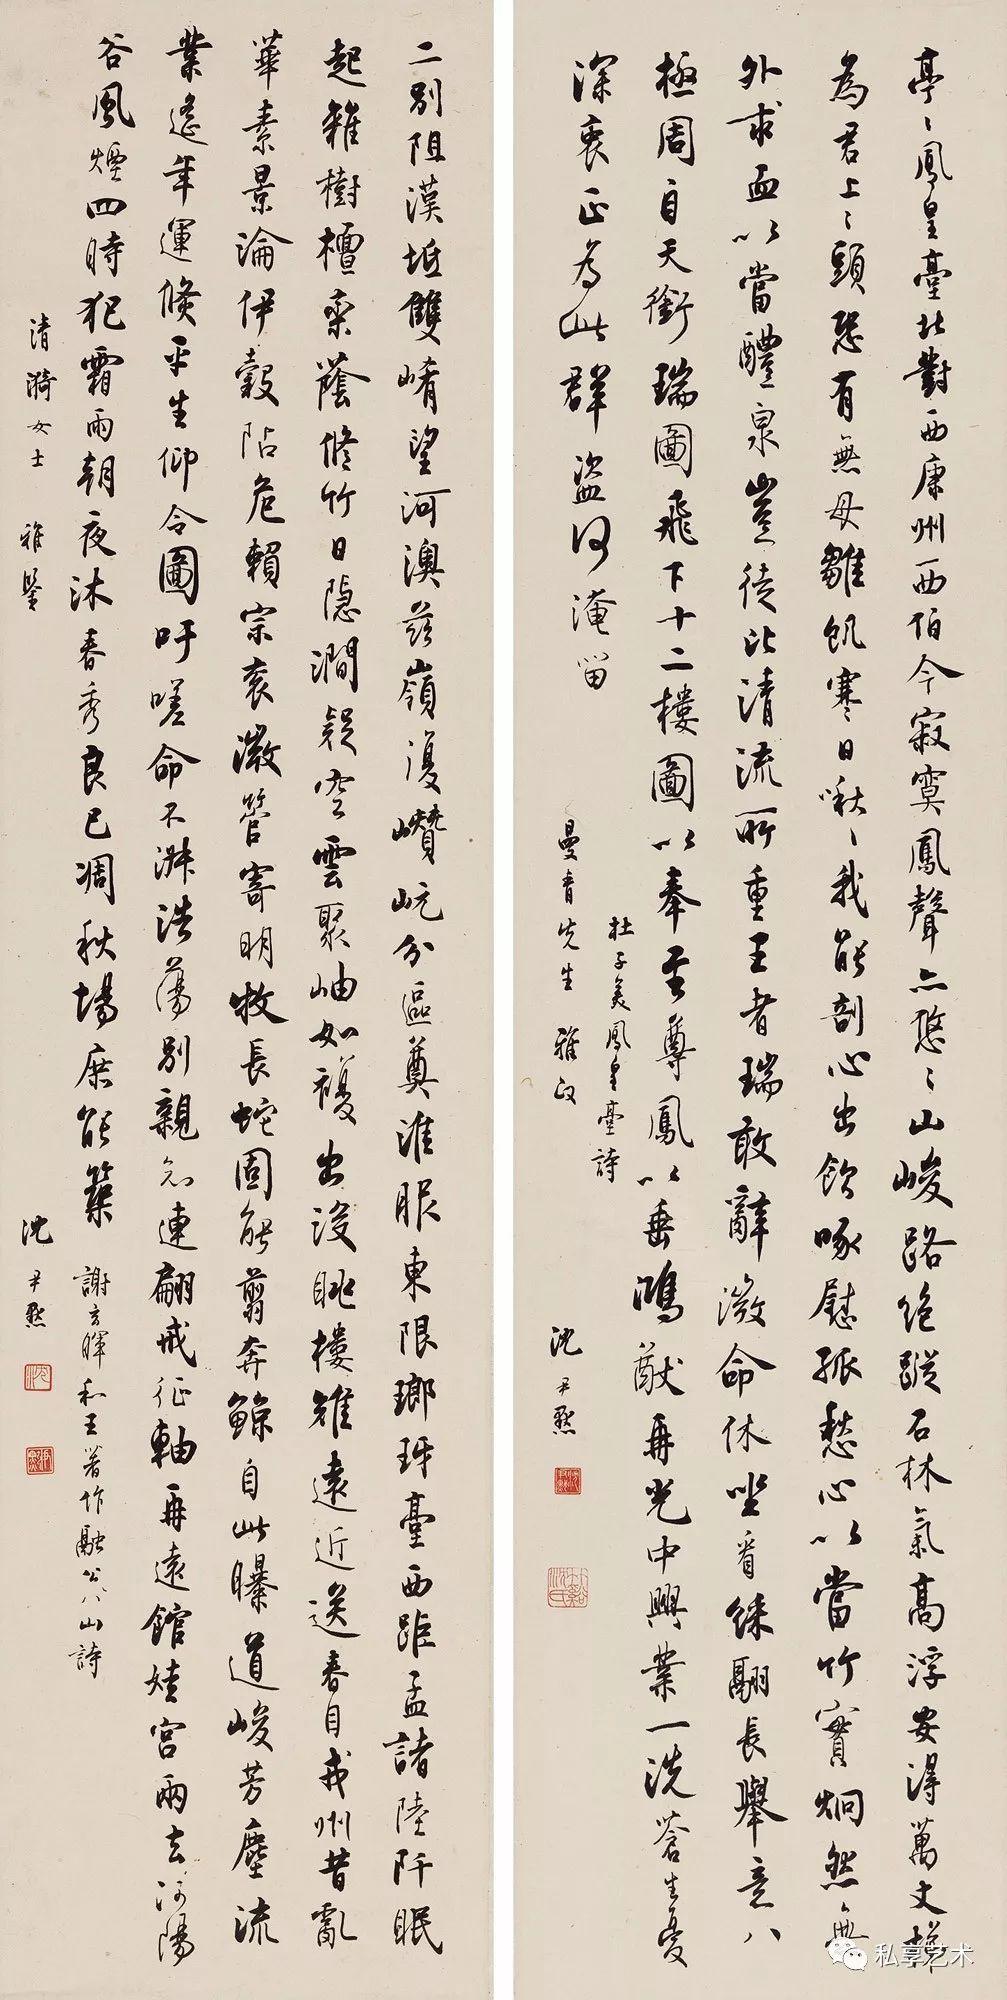 亭〻鳳皇臺北對西康州西伯今寂寞鳳聲亦悠〻山峻路絕蹤石林氣高浮安得萬丈梯
為君上〻頭恐有無母雛飢寒日啾〻我能剖心出飲啄慰孤愁心以當竹實炯然無
外求血以當醴泉豈徒比清流所重王者瑞敢辭微命休坐看綵翮長舉意八
極周自天銜瑞圖飛下十二樓圖以奉至尊鳳以垂鴻猷再光中興業一洗蒼生憂
深衷正為此群盜何淹留
杜子美鳳皇臺詩
曼青先生 雅政
沈尹默
二別阻漢坻雙崤望河澳茲嶺復巑岏分區奠淮服東限瑯琊臺西距孟諸陸阡眠
起雜樹檀欒蔭脩竹日隱澗疑空雲聚岫如複出沒眺樓雉遠近送春目戎州昔亂
華素景淪伊穀阽危賴宗袞微管寄明牧長蛇固能翦奔鯨自此曝道峻芳塵流
業遙年運倏平生仰令圖吁嗟命不淑浩蕩別親知連翩戒征軸再遠館娃宮兩去河陽
谷風煙四時犯霜雨朝夜沐春秀良已凋秋場庶能築 謝玄暉和王著作融公八山詩
清漪女士 雅鑒
沈尹默
私享艺术